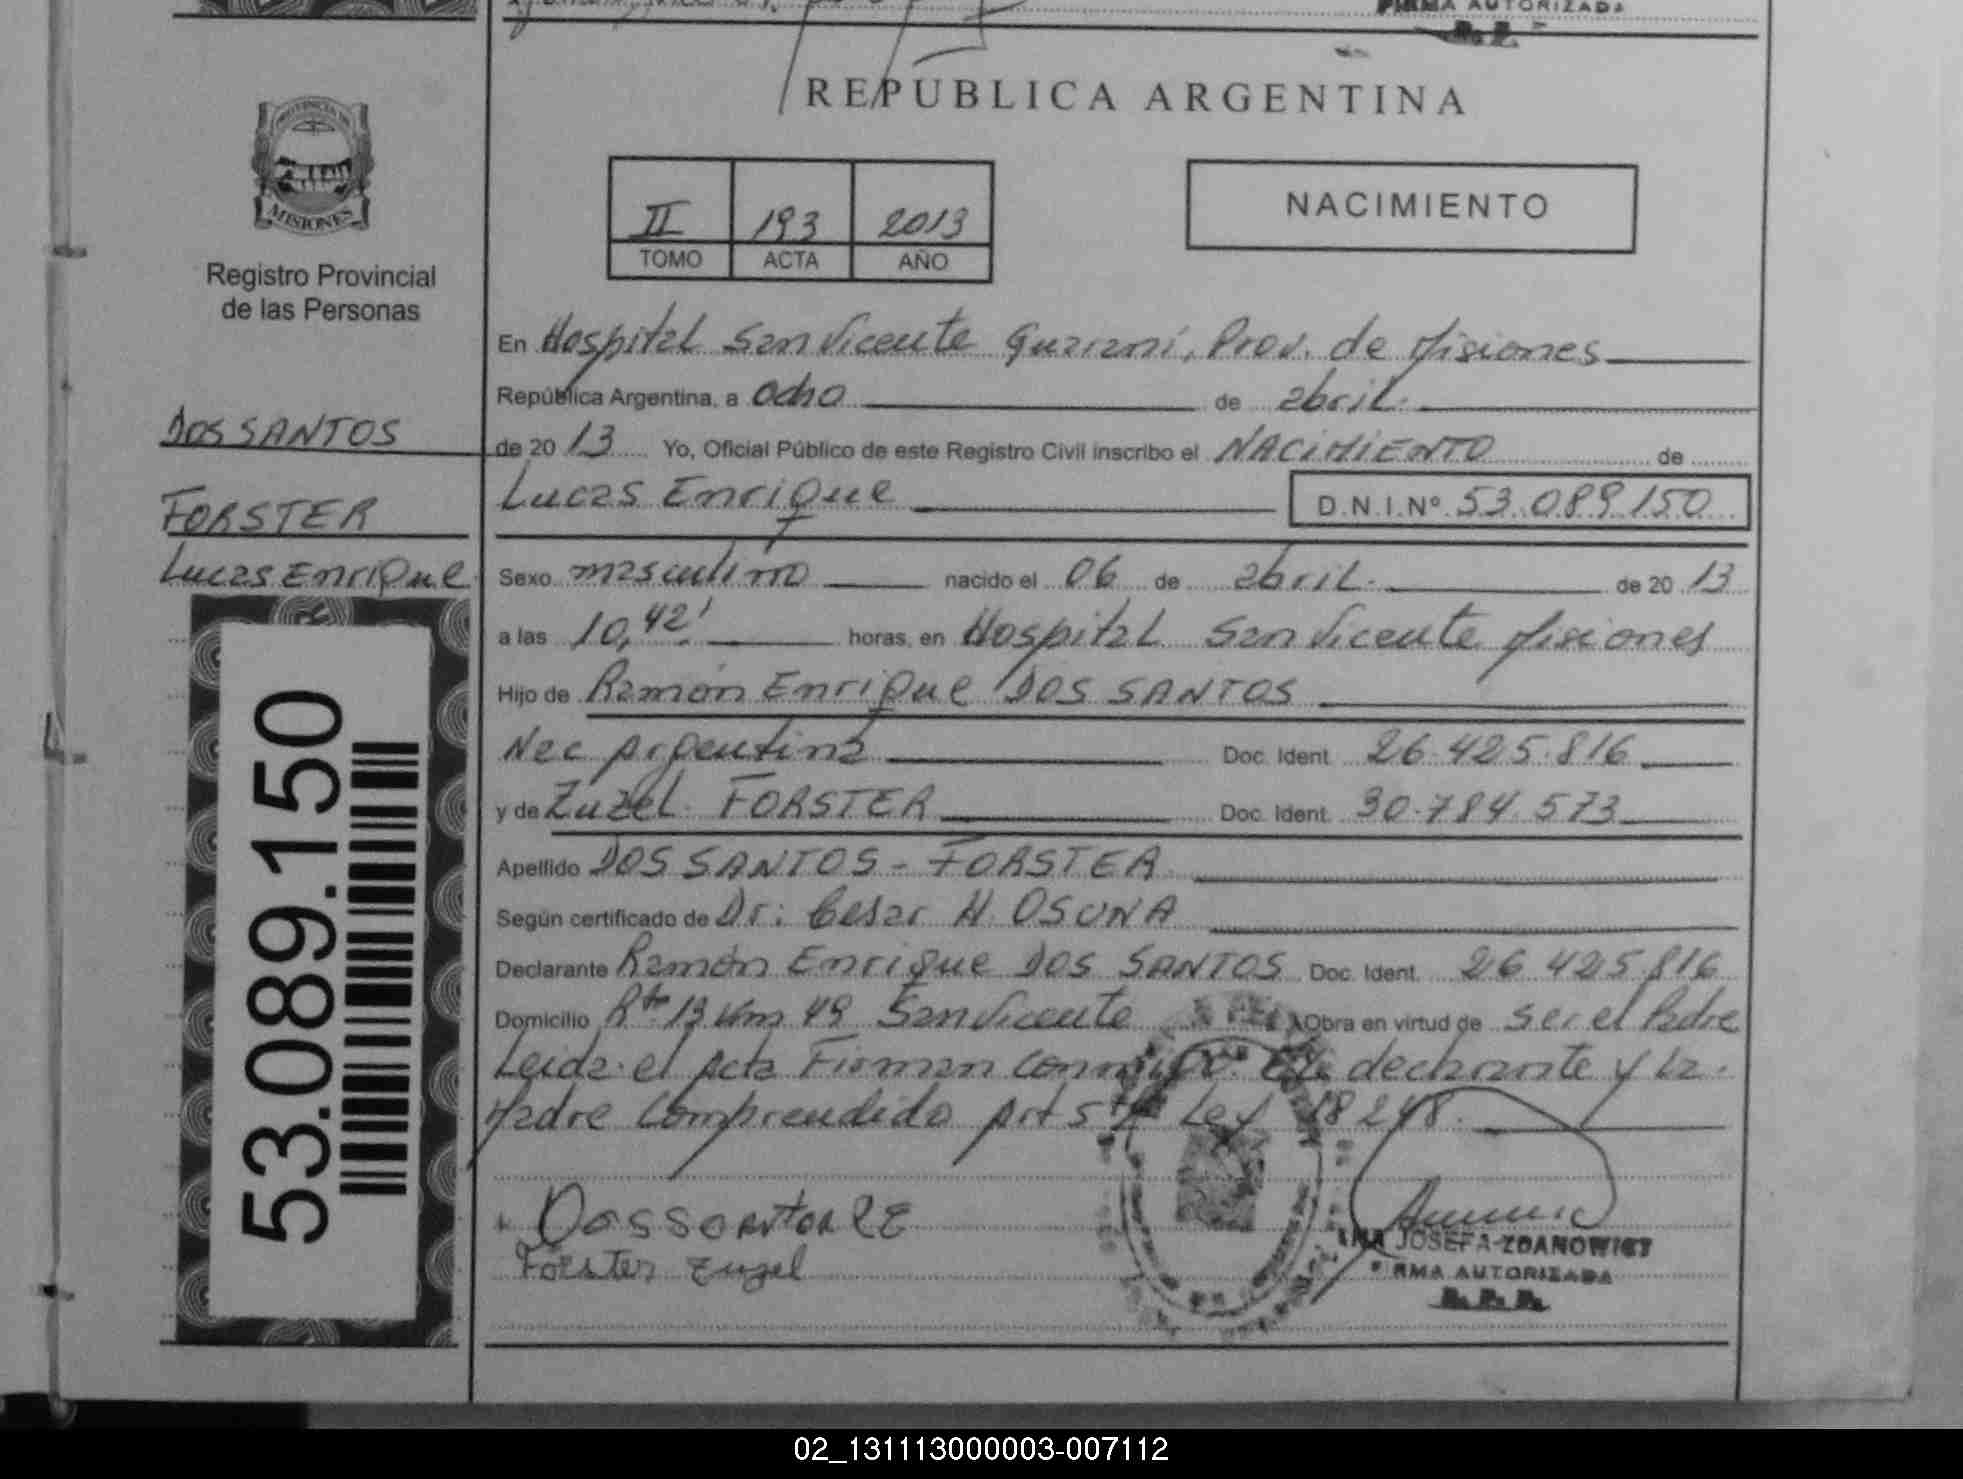 FIRMA AUTORIZADA
REPÚBLICA ARGENTINA
PROVINCIA DE
MISIONES
Registro Provincial
de las Personas
II 193 2013
TOMO ACTA AÑO
NACIMIENTO
DOS SANTOS
FORSTER
Lucas Enrique
53.089.150
En Hospital San Vicente Guaraní, Prov. de Misiones
República Argentina, a ocho de abril.
de 20 13 Yo, Oficial Público de este Registro Civil inscribo el NACIMIENTO de
Lucas Enrique D.N.I.Nº 53.089.150
Sexo masculino nacido el 06 de abril. de 20 13
a las 10,42' horas, en Hospital San Vicente Misiones
Hijo de Ramón Enrique DOS SANTOS
Nac Argentina Doc. Ident. 26.425.816
y de Zuzel FORSTER Doc. Ident. 30.784.573
Apellido DOS SANTOS - FORSTER
Según certificado de Dr: Cesar H. OSUNA
Declarante Ramón Enrique DOS SANTOS Doc. Ident. 26.425.816
Domicilio Rta 13 Km 49 San Vicente Obra en virtud de ser el Padre
Leida el Acta Firman conmigo el declarante y la
Madre Comprendido Art 5º Ley 18248.
Dossantos RE
Forster Zuzel
JOSEFA ZDANOWICZ
FIRMA AUTORIZADA
02_131113000003-007112